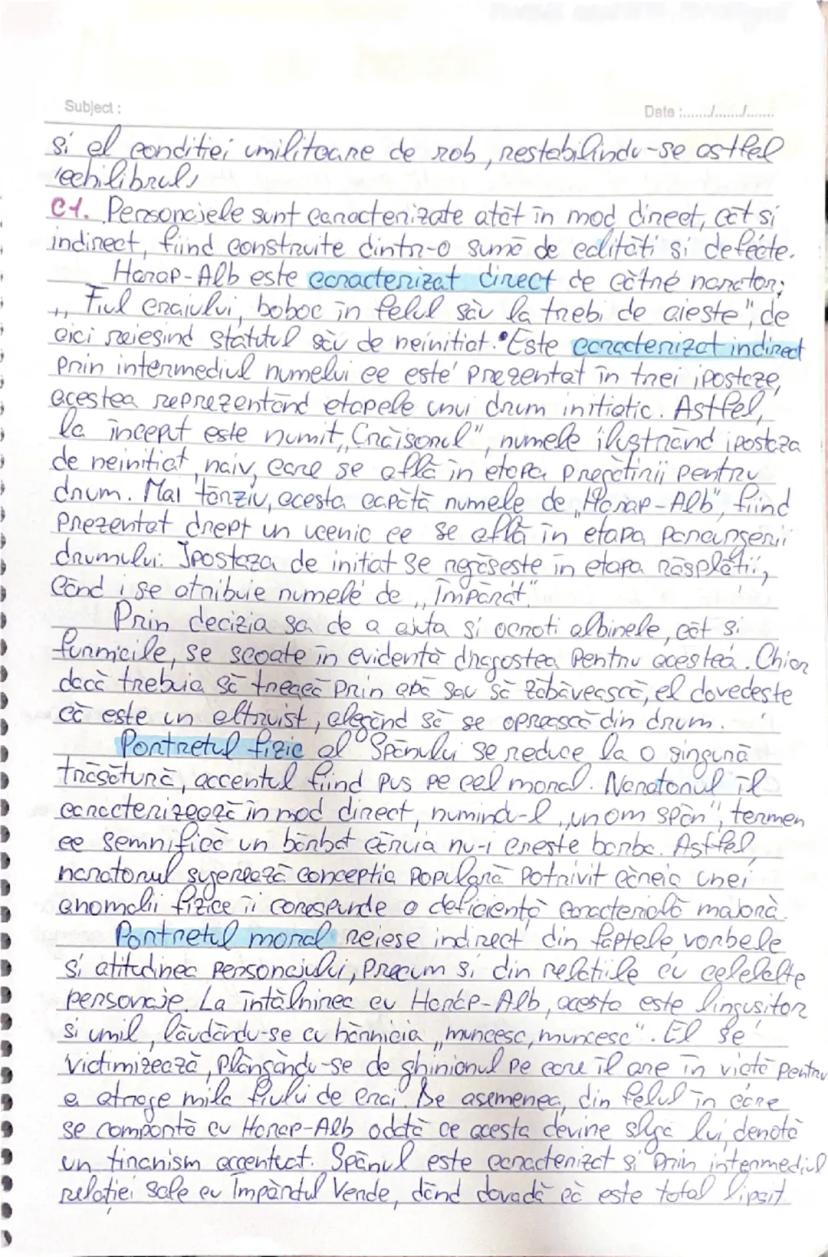 Subject :
Date :....../......./.......
și el condiției umilitoare de rob, restabilindu-se astfel
echilibrul,
C1. Personajele sunt caracterizate atât în mod direct, cât și
indirect, fiind construite dintr-o sumă de calități și defecte.
Harap-Alb este caracterizat direct de către narator;
„ Fiul craiului, boboc în felul său la trebi de aieste", de
aici reieșind statutul său de neinițiat. Este caracterizat indirect
prin intermediul numelui ce este prezentat în trei ipostaze,
acestea reprezentând etapele unui drum inițiatic. Astfel,
la început este numit „Crăișorul", numele ilustrând ipostaza
de neinițiat, naiv, care se află în etapa pregătirii pentru
drum. Mai târziu, acesta capătă numele de „Harap-Alb", fiind
prezentat drept un ucenic ce se află în etapa parcurgerii
drumului. Ipostaza de inițiat se regăsește în etapa răsplătii,
când i se atribuie numele de „Împărat".
Prin decizia sa de a ajuta și ocroti albinele, cât și
furnicile, se scoate în evidență dragostea pentru acestea. Chiar
dacă trebuia să treacă prin apă sau să zăbăvească, el dovedește
că este un altruist, alegând să se oprească din drum.
Portretul fizic al Spânului se reduce la o singură
trăsătură, accentul fiind pus pe cel moral. Naratorul îl
caracterizează în mod direct, numindu-l „un om spân", termen
ce semnifică un bărbat căruia nu-i crește barba. Astfel,
naratorul sugerează concepția populară potrivit căreia unei
anomalii fizice îi corespunde o deficiență caracterială majoră.
Portretul moral reiese indirect din faptele, vorbele
și atitudinea personajului, precum și din relațiile cu celelalte
personaje. La întâlnirea cu Harap-Alb, acesta este lingușitor
și umil, lăudându-se cu hărnicia „muncesc, muncesc". El se
victimizează, plângându-se de ghinionul pe care îl are în viață pentru
a atrage mila fiului de crai. De asemenea, din felul în care
se comportă cu Harap-Alb odată ce acesta devine sluga lui, denotă
un tiranism accentuat. Spânul este caracterizat și prin intermediul
relației sale cu Împăratul Verde, dând dovadă că este total lipsit